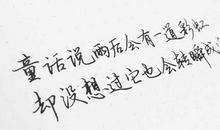 童话说雨后会有一道彩虹
却没想过它也会转瞬成